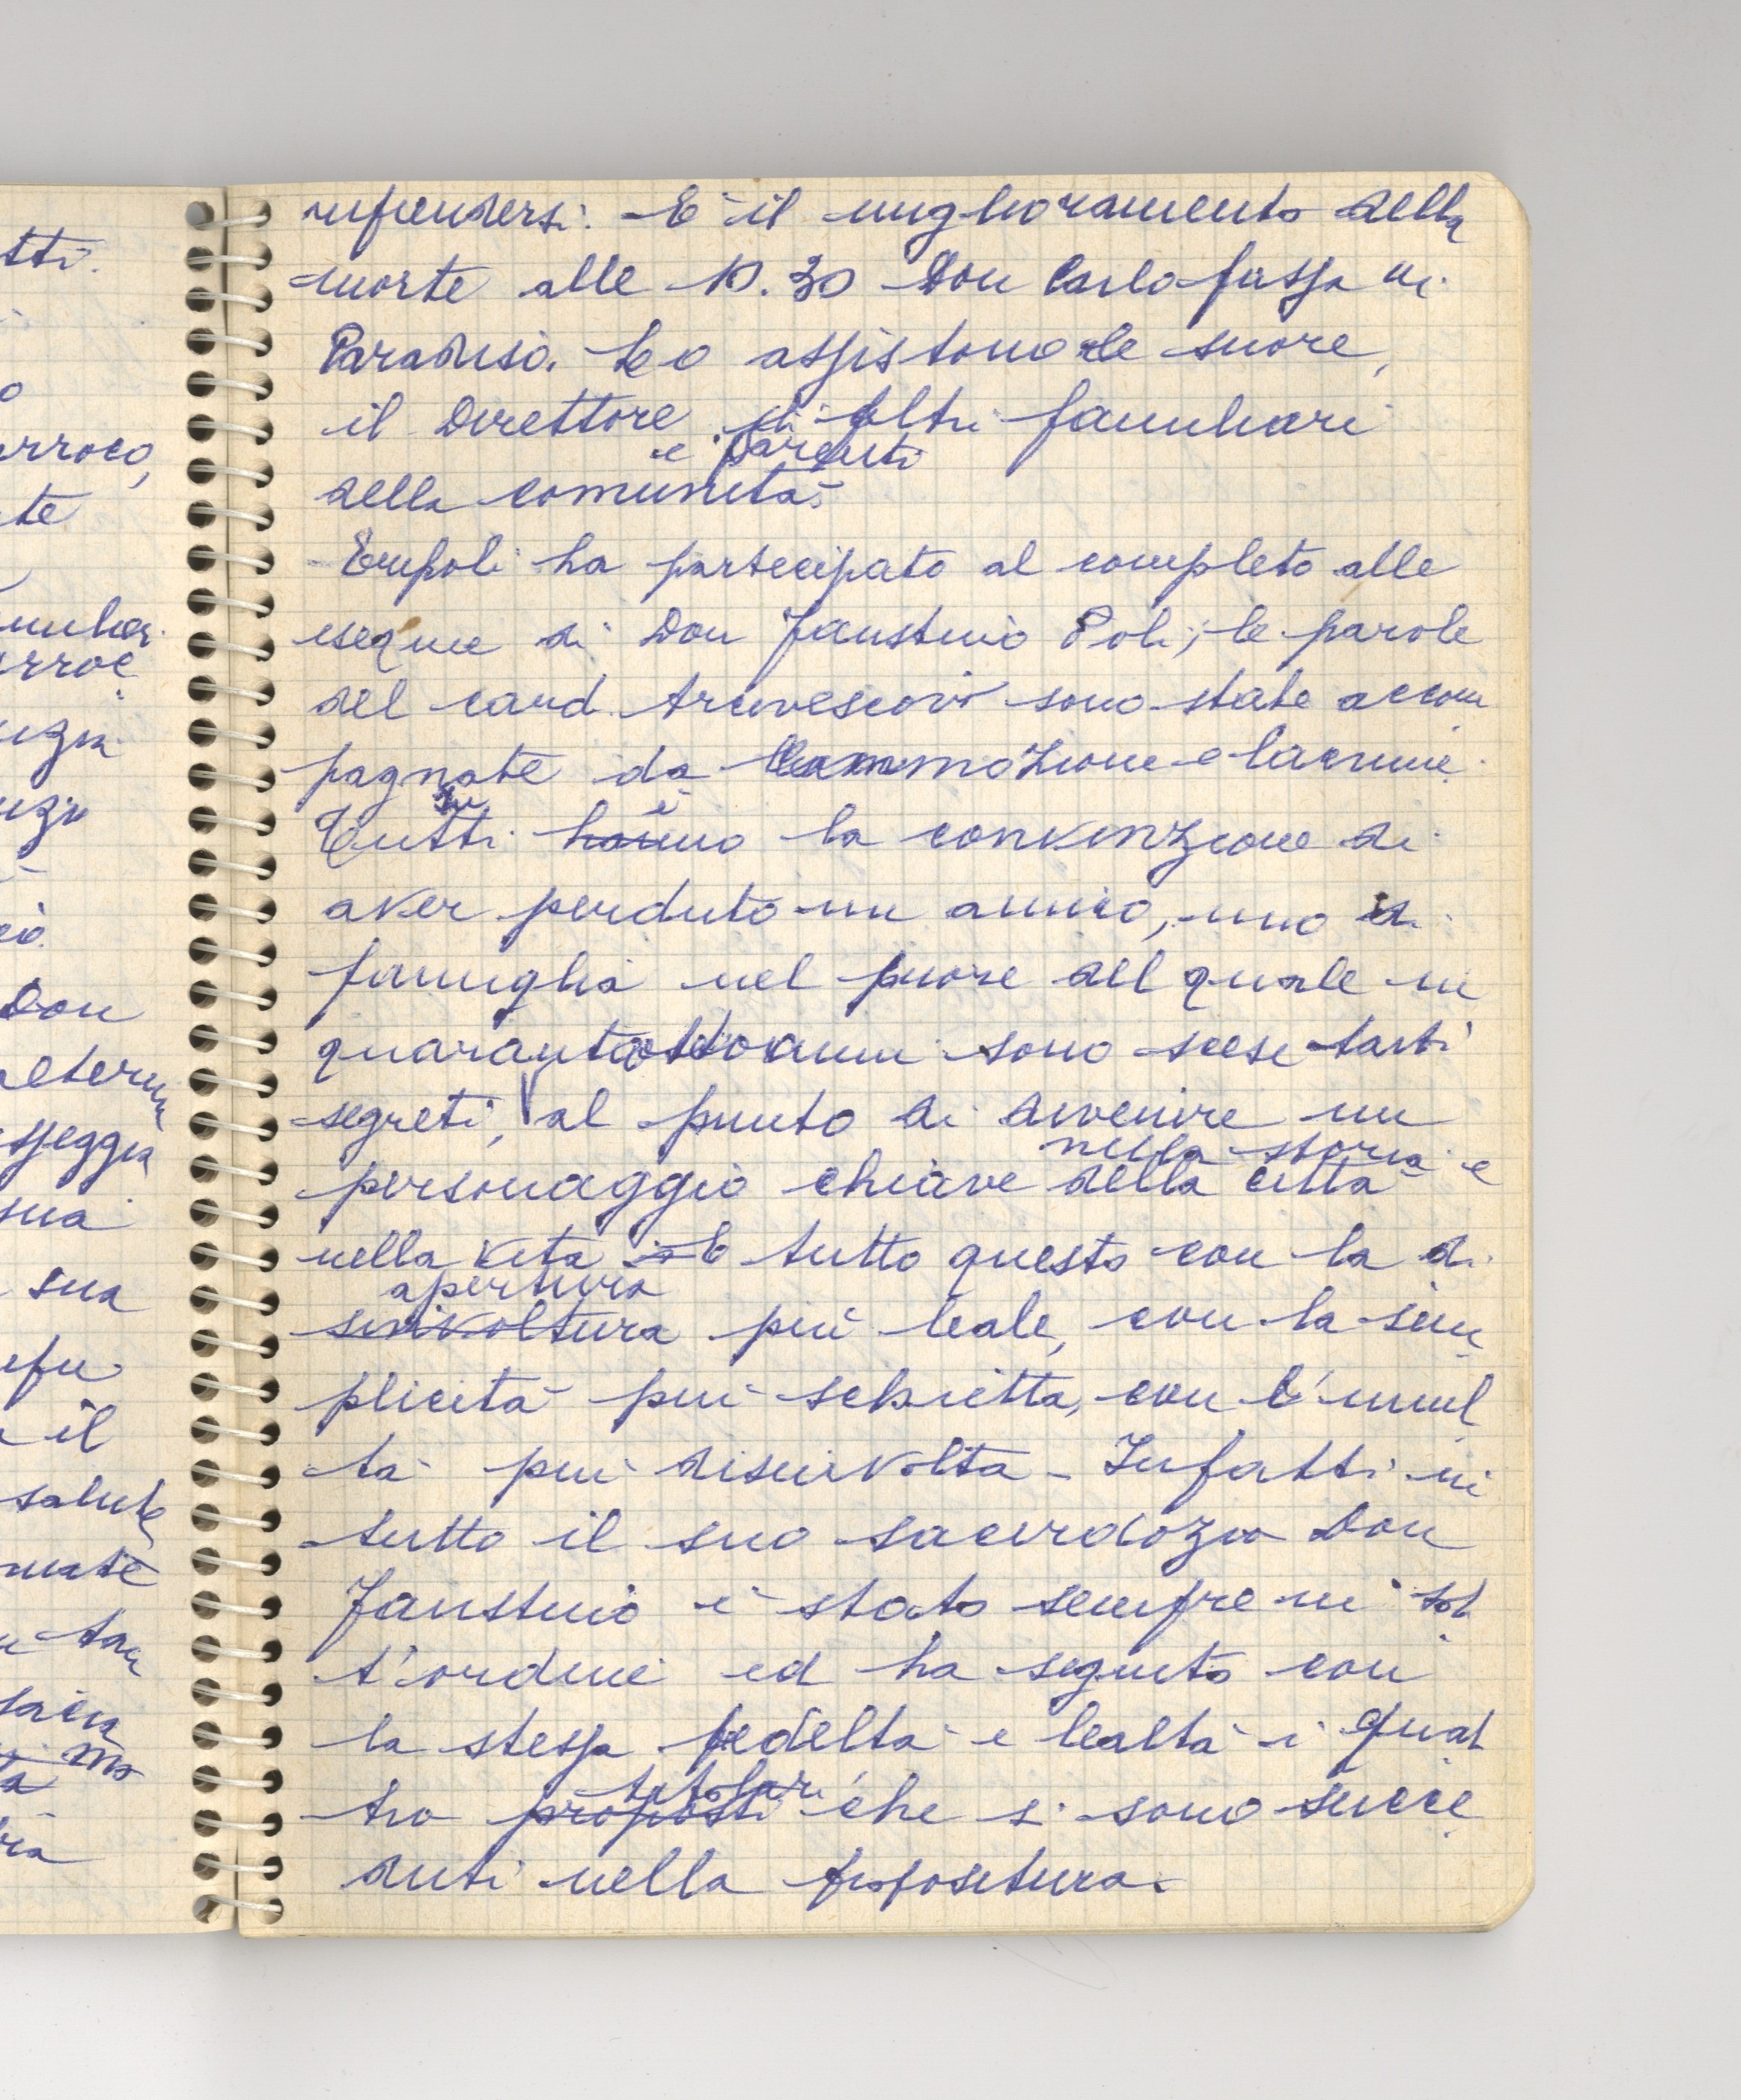 riprendersi. È il miglioramento della
morte alle 10.30 Don Carlo passa in
Paradiso. Lo assistono le suore,
il Direttore altri famuliari
e parenti
della comunità.
Empoli ha partecipato al completo alle
esequie di Don Faustino Poli; le parole
del card. Arcivescovo sono state accom
pagnate da commozione e lacrime.
In è
Tutti hanno la convinzione di
aver perduto un amico, uno di
famiglia nel cuore del quale in
quarantotto anni sono scesi tanti
segreti, al punto di divenire un
nella storia e
personaggio chiave della città
nella vita e tutto questo con la di
apertura
sinvoltura più leale, con la sim
plicità più schietta, con l'umil
tà più disinvolta - Infatti in
tutto il suo sacerdozio Don
Faustino è stato sempre in sot
t'ordine ed ha seguito con
la stessa fedeltà e lealtà i quat
titolari
tro proposti che si sono succe
duti nella propositura.
tti.
o
arroco,
te
arroc
Don
sua
sua
il
salute